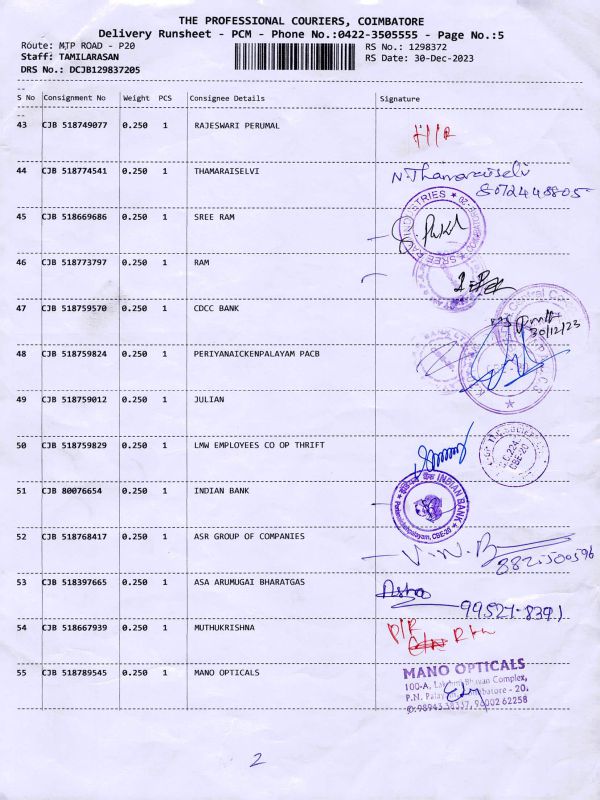 THE PROFESSIONAL COURIERS, COIMBATORE
Delivery Runsheet - PCM - Phone No.:0422-3505555 - Page No.:5
Route: MTP ROAD - P20
RS No.: 1298372
Staff: TAMILARASAN
RS Date: 30-Dec-2023
DRS No.: DCJB129837205
S No Consignment No Weight PCS Consignee Details Signature
43 CJB 518749077 0.250 1 RAJESWARI PERUMAL
44 CJB 518774541 0.250 1 THAMARAISELVI N.Thamaraiselvi
8072448805
45 CJB 518669686 0.250 1 SREE RAM
46 CJB 518773797 0.250 1 RAM
47 CJB 518759570 0.250 1 CDCC BANK
30/12/23
48 CJB 518759824 0.250 1 PERIYANAICKENPALAYAM PACB
49 CJB 518759012 0.250 1 JULIAN
50 CJB 518759829 0.250 1 LMW EMPLOYEES CO OP THRIFT
CBE-20
51 CJB 80076654 0.250 1 INDIAN BANK
INDIAN BANK
CBE-20
52 CJB 518768417 0.250 1 ASR GROUP OF COMPANIES
53 CJB 518397665 0.250 1 ASA ARUMUGAI BHARATGAS
Asha
54 CJB 518667939 0.250 1 MUTHUKRISHNA
55 CJB 518789545 0.250 1 MANO OPTICALS
MANO OPTICALS
100-A, Lakshmi Bhavan Complex,
P.N. Palayam, Coimbatore - 20.
96002 62258
2